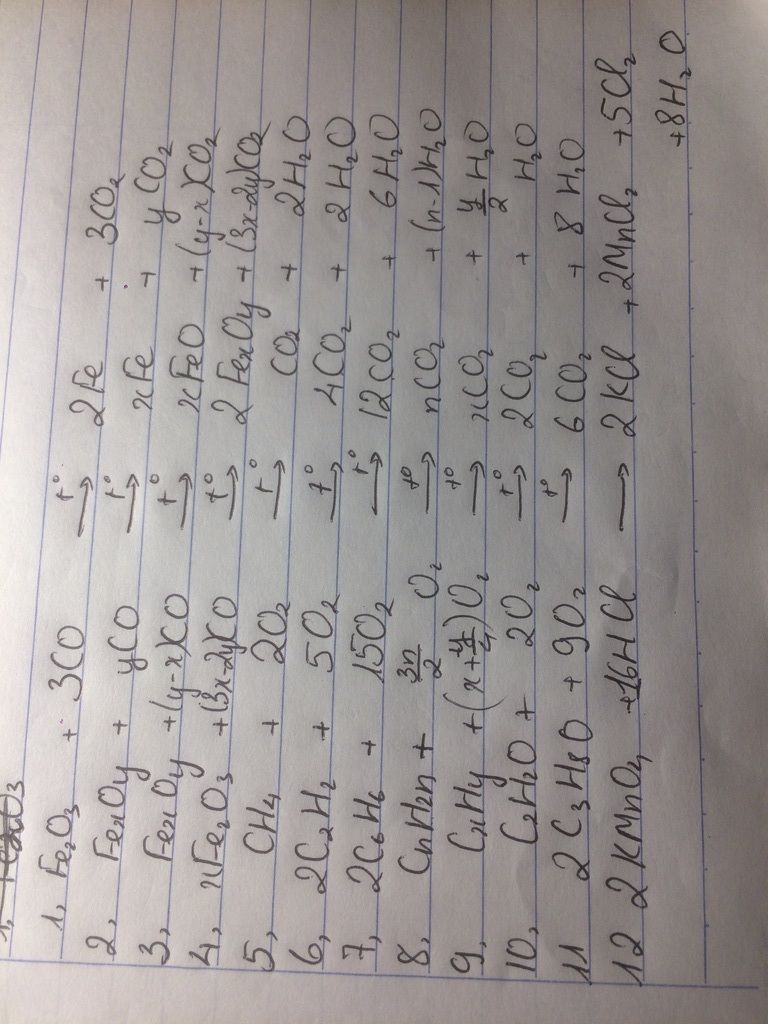 1, Fe₂O₃ + 3CO →t° 2Fe + 3CO₂
2, FexOy + yCO →t° xFe + yCO₂
3, FexOy + (y-x)CO →t° xFeO + (y-x)CO₂
4, xFe₂O₃ + (3x-2y)CO →t° 2FexOy + (3x-2y)CO₂
5, CH₄ + 2O₂ →t° CO₂ + 2H₂O
6, 2C₂H₂ + 5O₂ →t° 4CO₂ + 2H₂O
7, 2C₆H₆ + 15O₂ →t° 12CO₂ + 6H₂O
8, CnH2n + 3n/2 O₂ →t° nCO₂ + (n-1)H₂O
9, CxHy + (x+y/4)O₂ →t° xCO₂ + y/2 H₂O
10, C₂H₂O + 2O₂ →t° 2CO₂ + H₂O
11 2C₃H₈O + 9O₂ →t° 6CO₂ + 8H₂O
12 2KMnO₄ +16HCl → 2KCl +2MnCl₂ +5Cl₂
+8H₂O